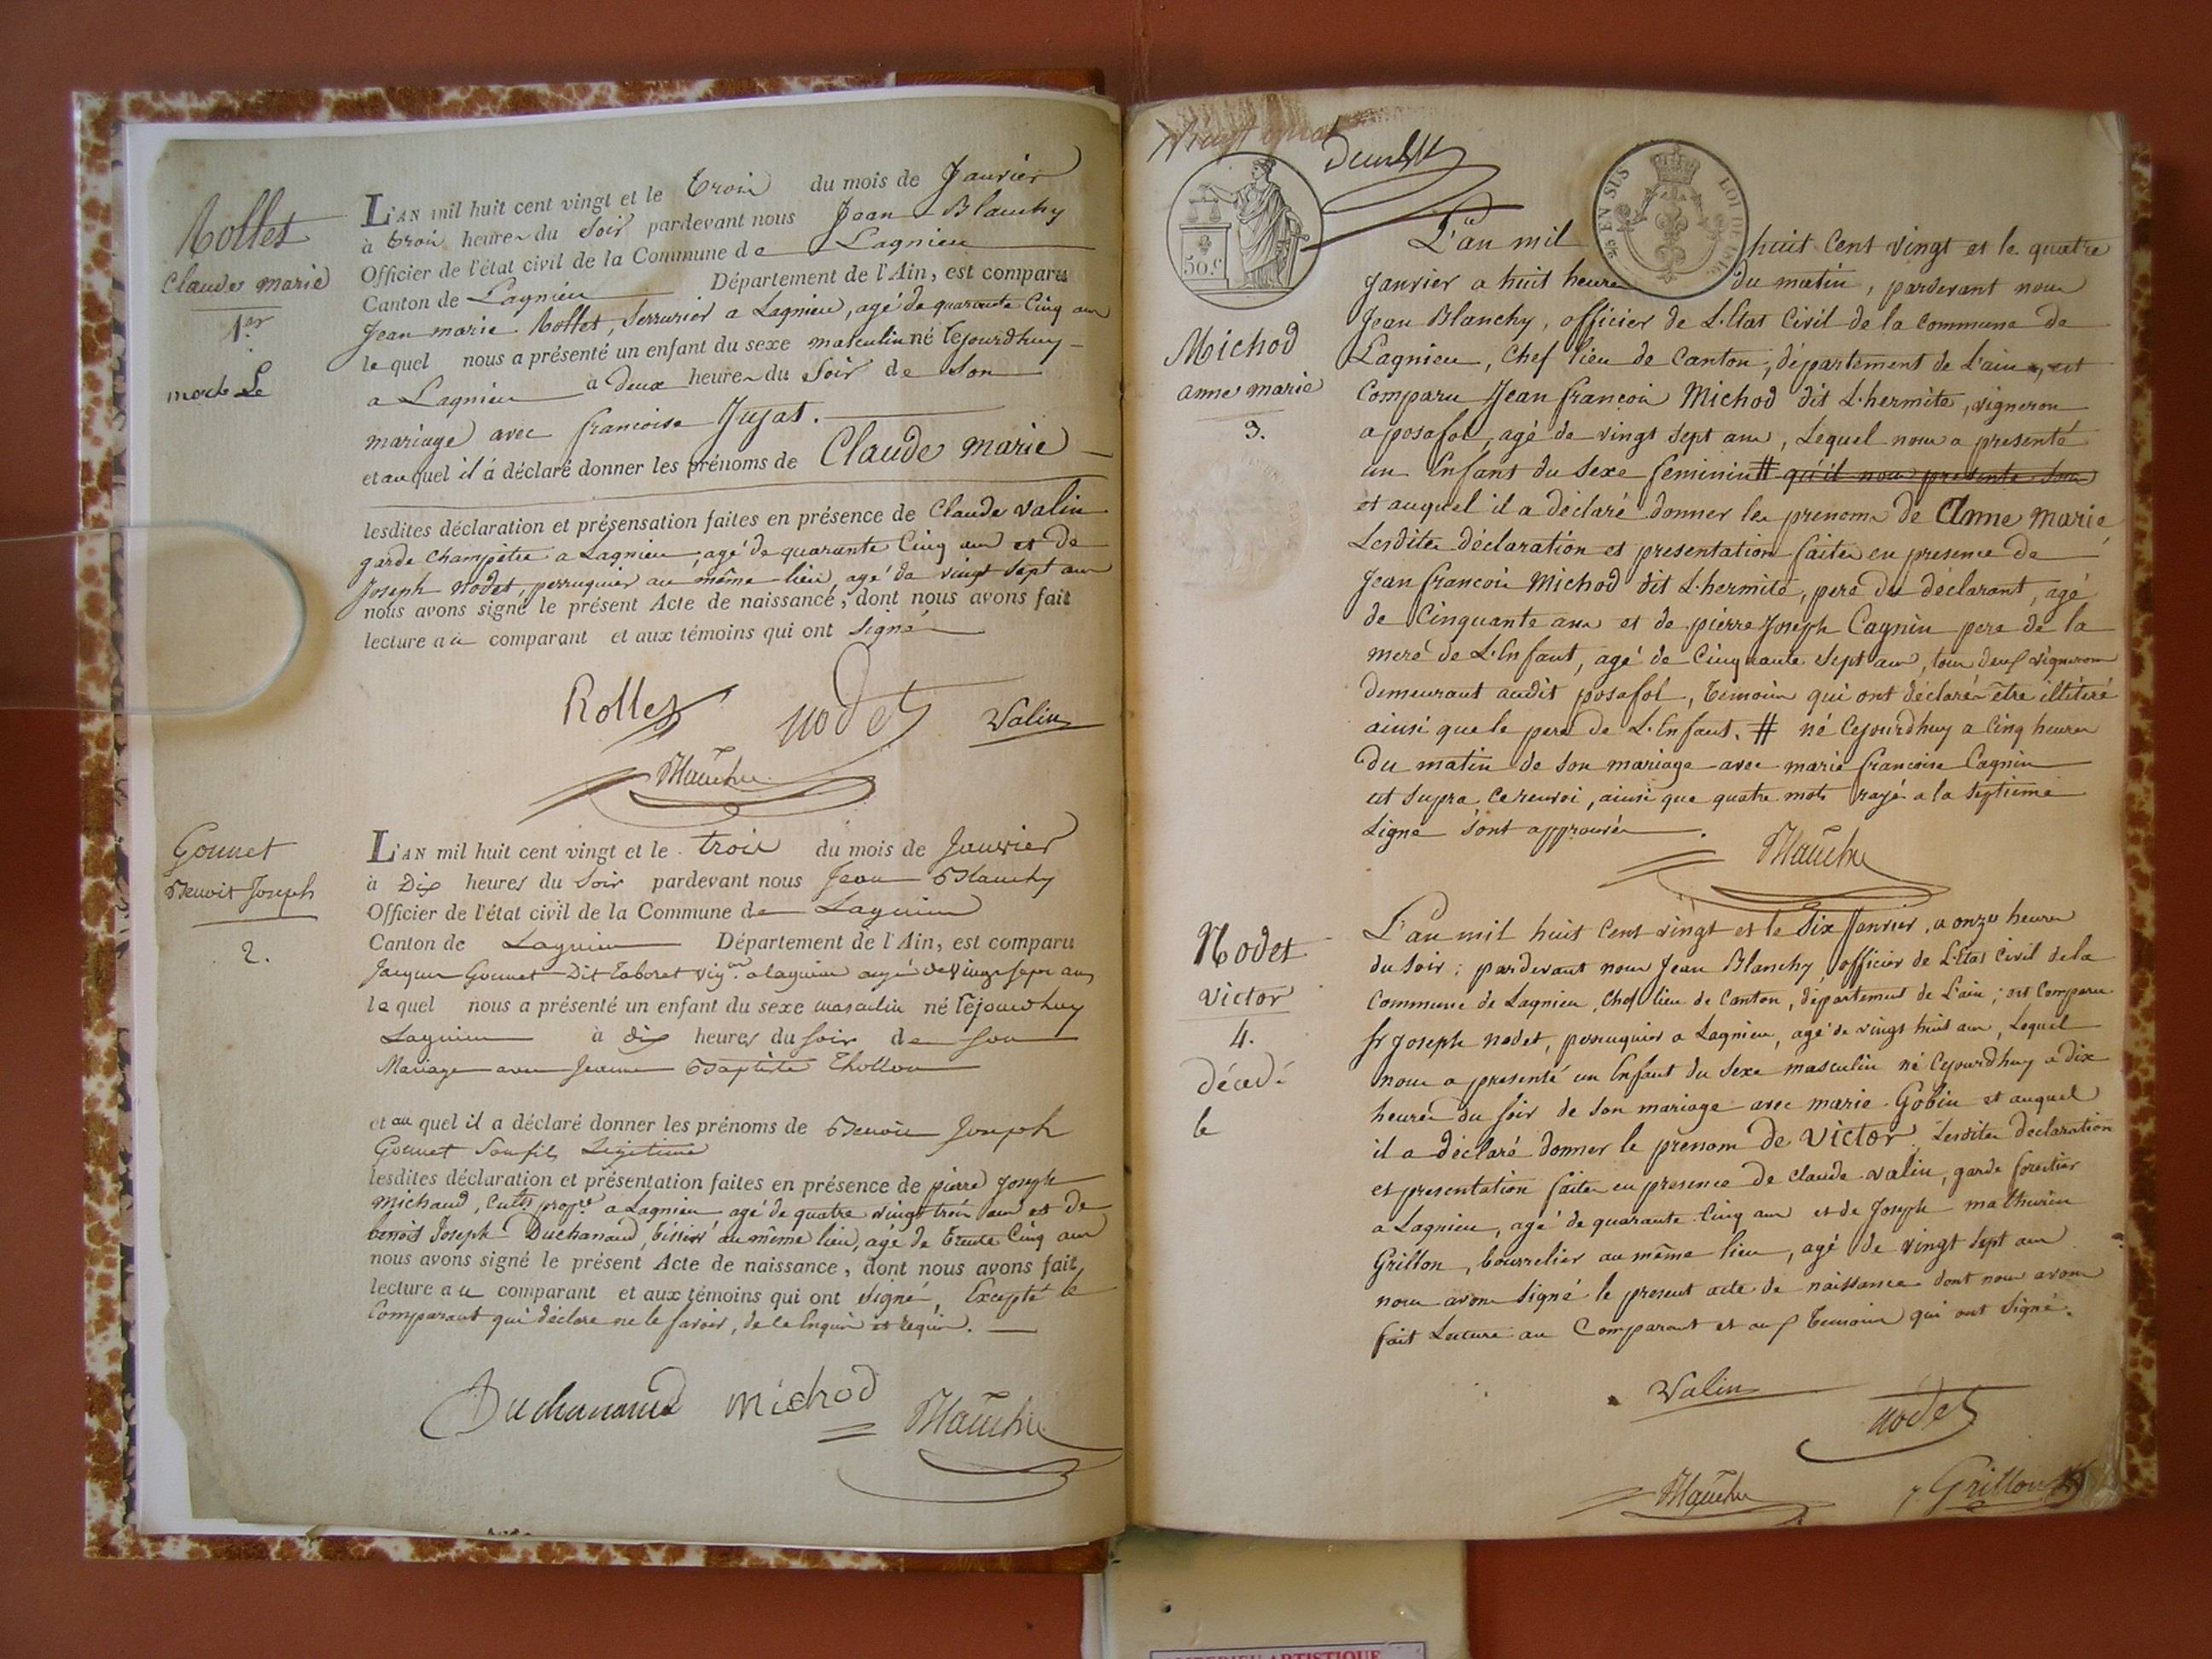 Rollet
Claude marie
1er
L'AN mil huit cent vingt et le trois du mois de Janvier
à trois heures du Soir pardevant nous Jean Blanchy
Officier de l'état civil de la Commune de Lagnieu
Canton de Lagnieu Département de l'Ain, est comparu
Jean marie Rollet, Serrurier a Lagnieu, agé de quarante Cinq ans
le quel nous a présenté un enfant du sexe masculin né cejourdhuy
a Lagnieu a deux heures du Soir de Son
mariage avec francoise Jujat.
et auquel il a déclaré donner les prénoms de Claude marie
lesdites déclaration et présensation faites en présence de Claude valin
garde Champêtre a Lagnieu, agé de quarante Cinq ans et de
Joseph nodet, perruquier au même lieu, agé de vingt Sept ans
nous avons signé le présent Acte de naissance, dont nous avons fait
lecture au comparant et aux témoins qui ont Signé
Rollet nodet Valin
Blanchy
Gonnet
Benoit Joseph
2.
L'AN mil huit cent vingt et le trois du mois de Janvier
à Dix heures du Soir pardevant nous Jean Blanchy
Officier de l'état civil de la Commune de Lagnieu
Canton de Lagnieu Département de l'Ain, est comparu
Jacque Gonnet Dit Taboret vig.on a lagnieu agé de vingt sept ans
le quel nous a présenté un enfant du sexe masculin né cejourdhuy
Lagnieu à dix heures du soir de son
Mariage avec Jeanne Baptiste Thollon
et au quel il a déclaré donner les prénoms de Benoit Joseph
Gonnet Son fils Legitime
lesdites déclaration et présentation faites en présence de pierre Joseph
michaud, Cult. prop.re a Lagnieu agé de quatre vingt trois ans et de
benoit Joseph Duchanaud, tissier au même lieu, agé de trente Cinq ans
nous avons signé le présent Acte de naissance, dont nous avons fait
lecture au comparant et aux témoins qui ont signé, Excepté le
Comparant qui déclare ne le savoir, de ce Enquis et requis.
Duchanaud michod Blanchy
deux
50.c
EN SUS LOI DE 1816
Michod
anne marie
3.
L'an mil huit Cent vingt et le quatre
Janvier a huit heures du matin, pardevant nous
Jean Blanchy, officier de L'Etat Civil de la Commune de
Lagnieu, Chef lieu de Canton, département de L'ain, est
Comparu Jean francois Michod dit L'hermite, vigneron
a posafol, agé de vingt Sept ans, Lequel nous a presenté
un Enfant du Sexe feminin # qu'il nous presente Son
et auquel il a déclaré donner les prenoms de Anne Marie
Lesdites déclaration et presentation faites en presence de
Jean francois Michod dit L'hermite, pere du déclarant, agé
de Cinquante ans et de pierre Joseph Cagnin pere de la
mere de L'Enfant, agé de Cinquante Sept ans, tous deux vignerons
demeurant audit posafol, temoins qui ont déclarés être illitéré
ainsi que le pere de L'Enfant. # né Cejourdhuy a Cinq heures
du matin de Son mariage avec marie francoise Cagnin
ut Supra Ce renvoi, ainsi que quatre mots rayés a la Septieme
Ligne sont approuvés.
Blanchy
Nodet
victor
4.
décédé
le
L'an mil huit Cent vingt et le Six Janvier, a onze heures
du Soir; pardevant nous Jean Blanchy officier de L'Etat Civil de la
Commune de Lagnieu, Chef lieu de Canton, département de L'ain; est Comparu
Sr Joseph nodet, perruquier a Lagnieu, agé de vingt huit ans, Lequel
nous a presenté un Enfant du Sexe masculin né Cejourdhuy a dix
heures du Soir de Son mariage avec marie Gobin et auquel
il a déclaré donner le prenom de victor. Lesdites declaration
et presentation faites en presence de Claude valin, garde forestier
a Lagnieu, agé de quarante Cinq ans et de Joseph mathurin
Grillon, bourrelier au même lieu, agé de vingt Sept ans
nous avons Signé le present acte de naissance dont nous avons
fait Lecture au Comparant et aux temoins qui ont Signé.
Valin
nodet
Blanchy
Grillon